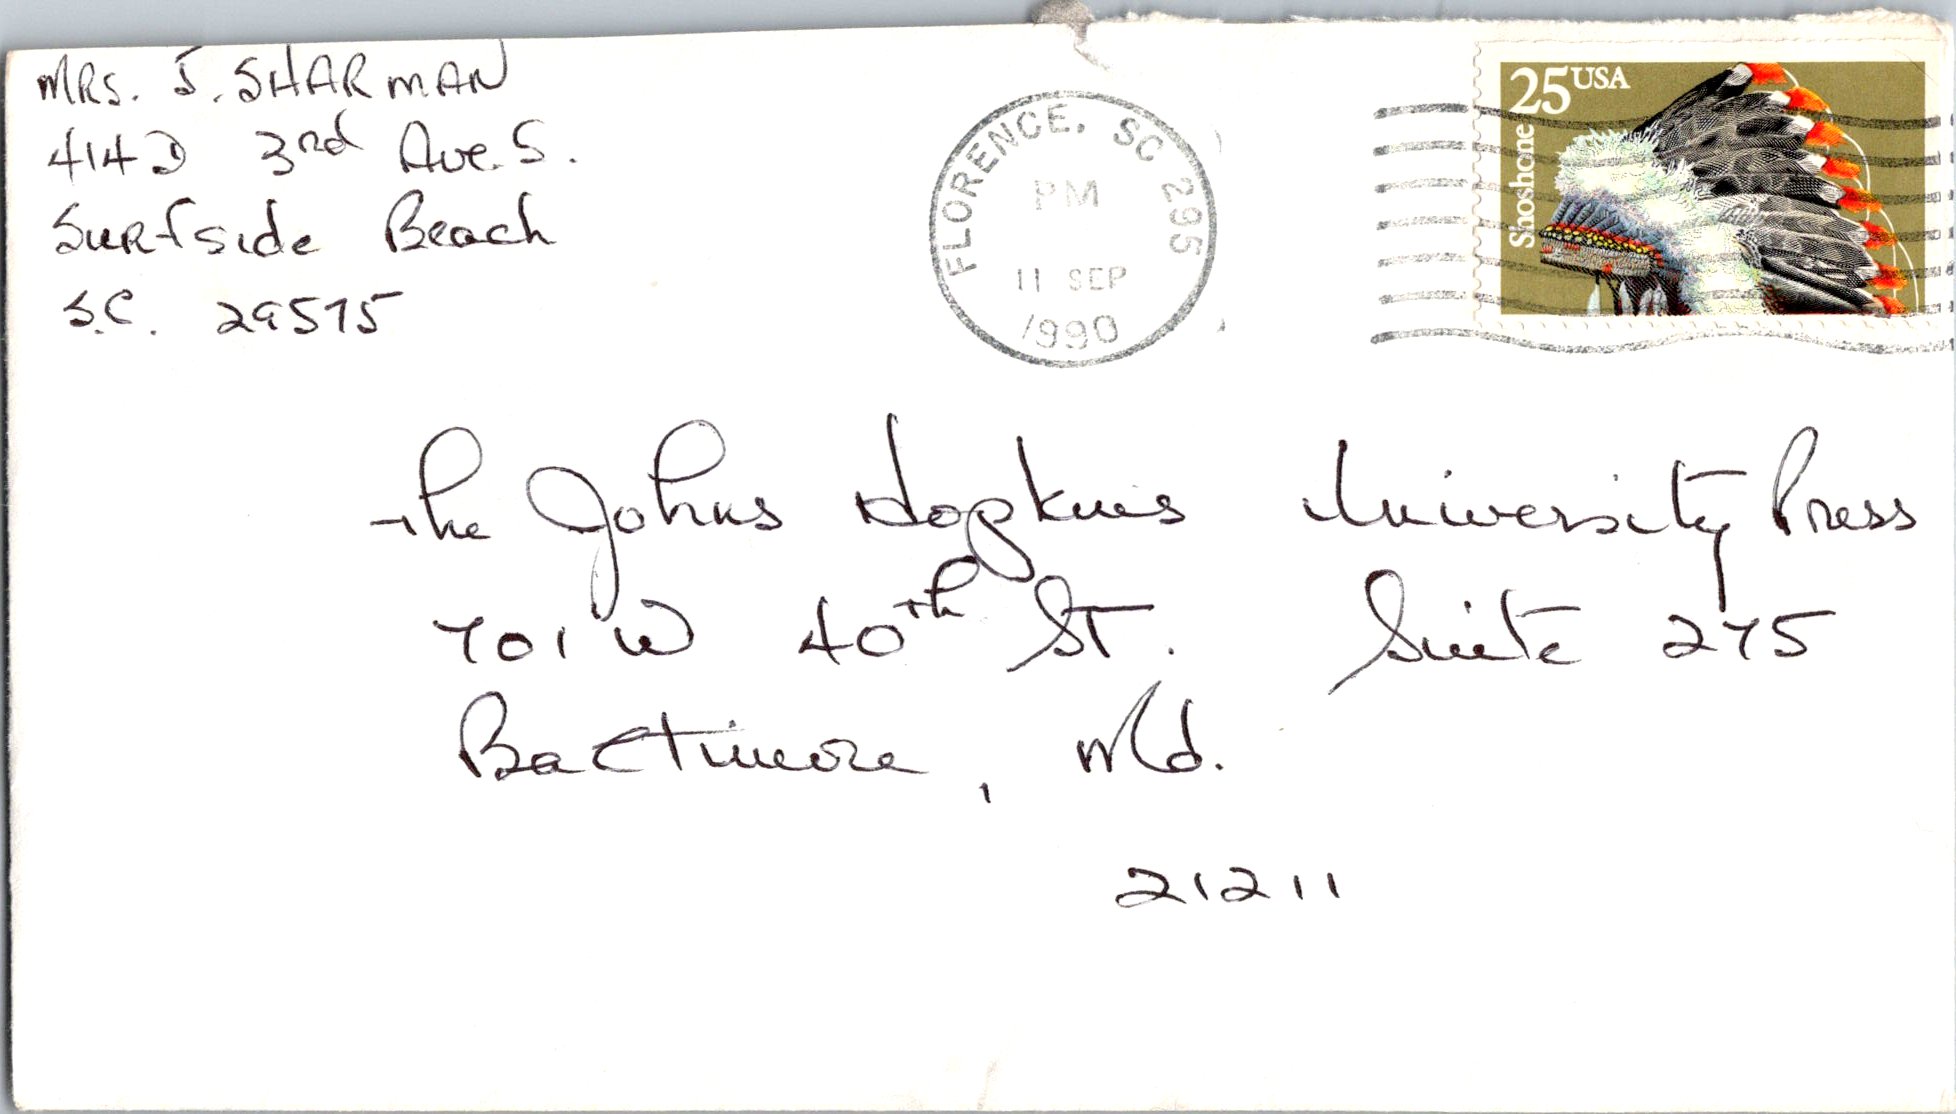 MRS. J. SHARMAN
414D 3rd Ave. S.
Surfside Beach
S.C. 29575
FLORENCE, SC 295
PM
11 SEP
1990
25 USA
Shoshone
The Johns Hopkins University Press
701 W 40th St. Suite 275
Baltimore, Md.
21211